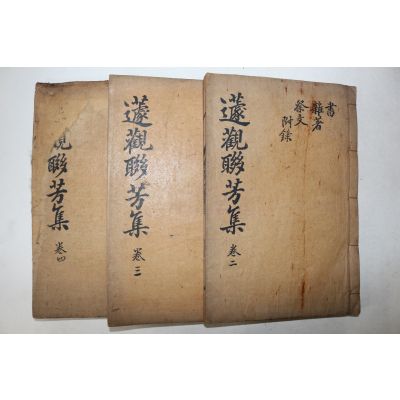 書
雜著
祭文
附錄
蘧觀聯芳集
卷二
蘧觀聯芳集
卷三
觀聯芳集
卷四